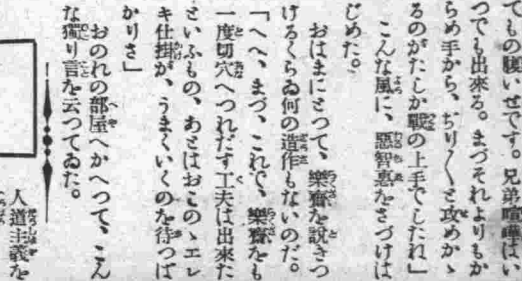 ても の腹いせです。兄弟喧嘩はい
つでも出來る。まづそれよりもか
らめ手から、ぢり〱と攻めかゝ
るのがたしか戰の上手でしたね」
こんな風に、惡智惠をさづけは
じめた。
おはまにとつて、樂齋を說きつ
けるくらゐ何の造作もないのだ。
「へへ、まづ、これで、樂齋をも
一度切穴へつれだす工夫は出來た
といふもの、あとはおこのゝエレ
キ仕掛が、うまくいくのを待つば
かりさ」
おのれの部屋へかへつて、こん
な獨り言を云つてゐた。
人道主義を